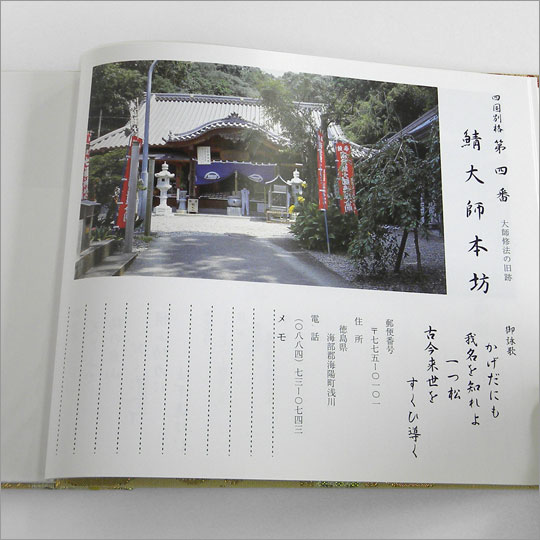 四国別格 第四番 大師修法の旧跡
鯖大師本坊
御詠歌
かげだにも
我名を知れよ
一つ松
古今来世を
すくひ導く
郵便番号
〒七七五―〇一〇一
住所
徳島県
海部郡海陽町浅川
電話
(〇八八四)七三―〇七四三
メモ